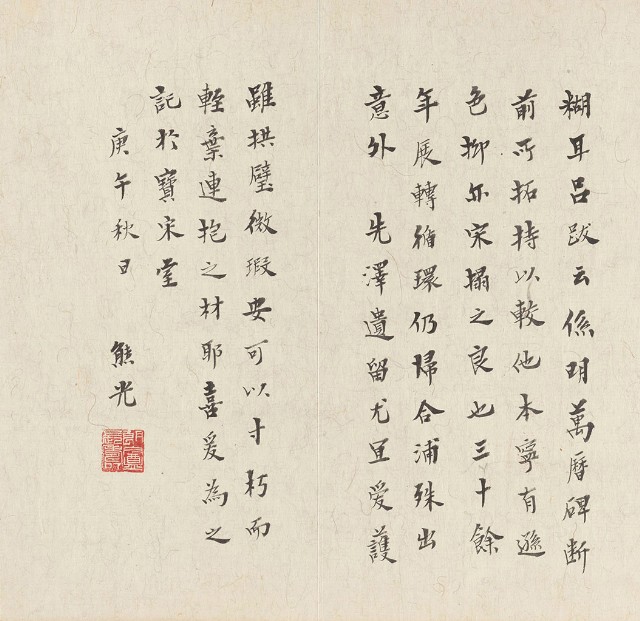 糊耳吕跋云係明萬曆碑断
前所拓持以較他本寧有遜
色抑亦宋搨之良也三十餘
年展轉循環仍歸合浦殊出
意外　先澤遺留尤宜愛護
雖拱璧微瑕安可以寸朽而
輕棄連抱之材耶喜爰為之
記於寶宋堂
庚午秋日　熊光